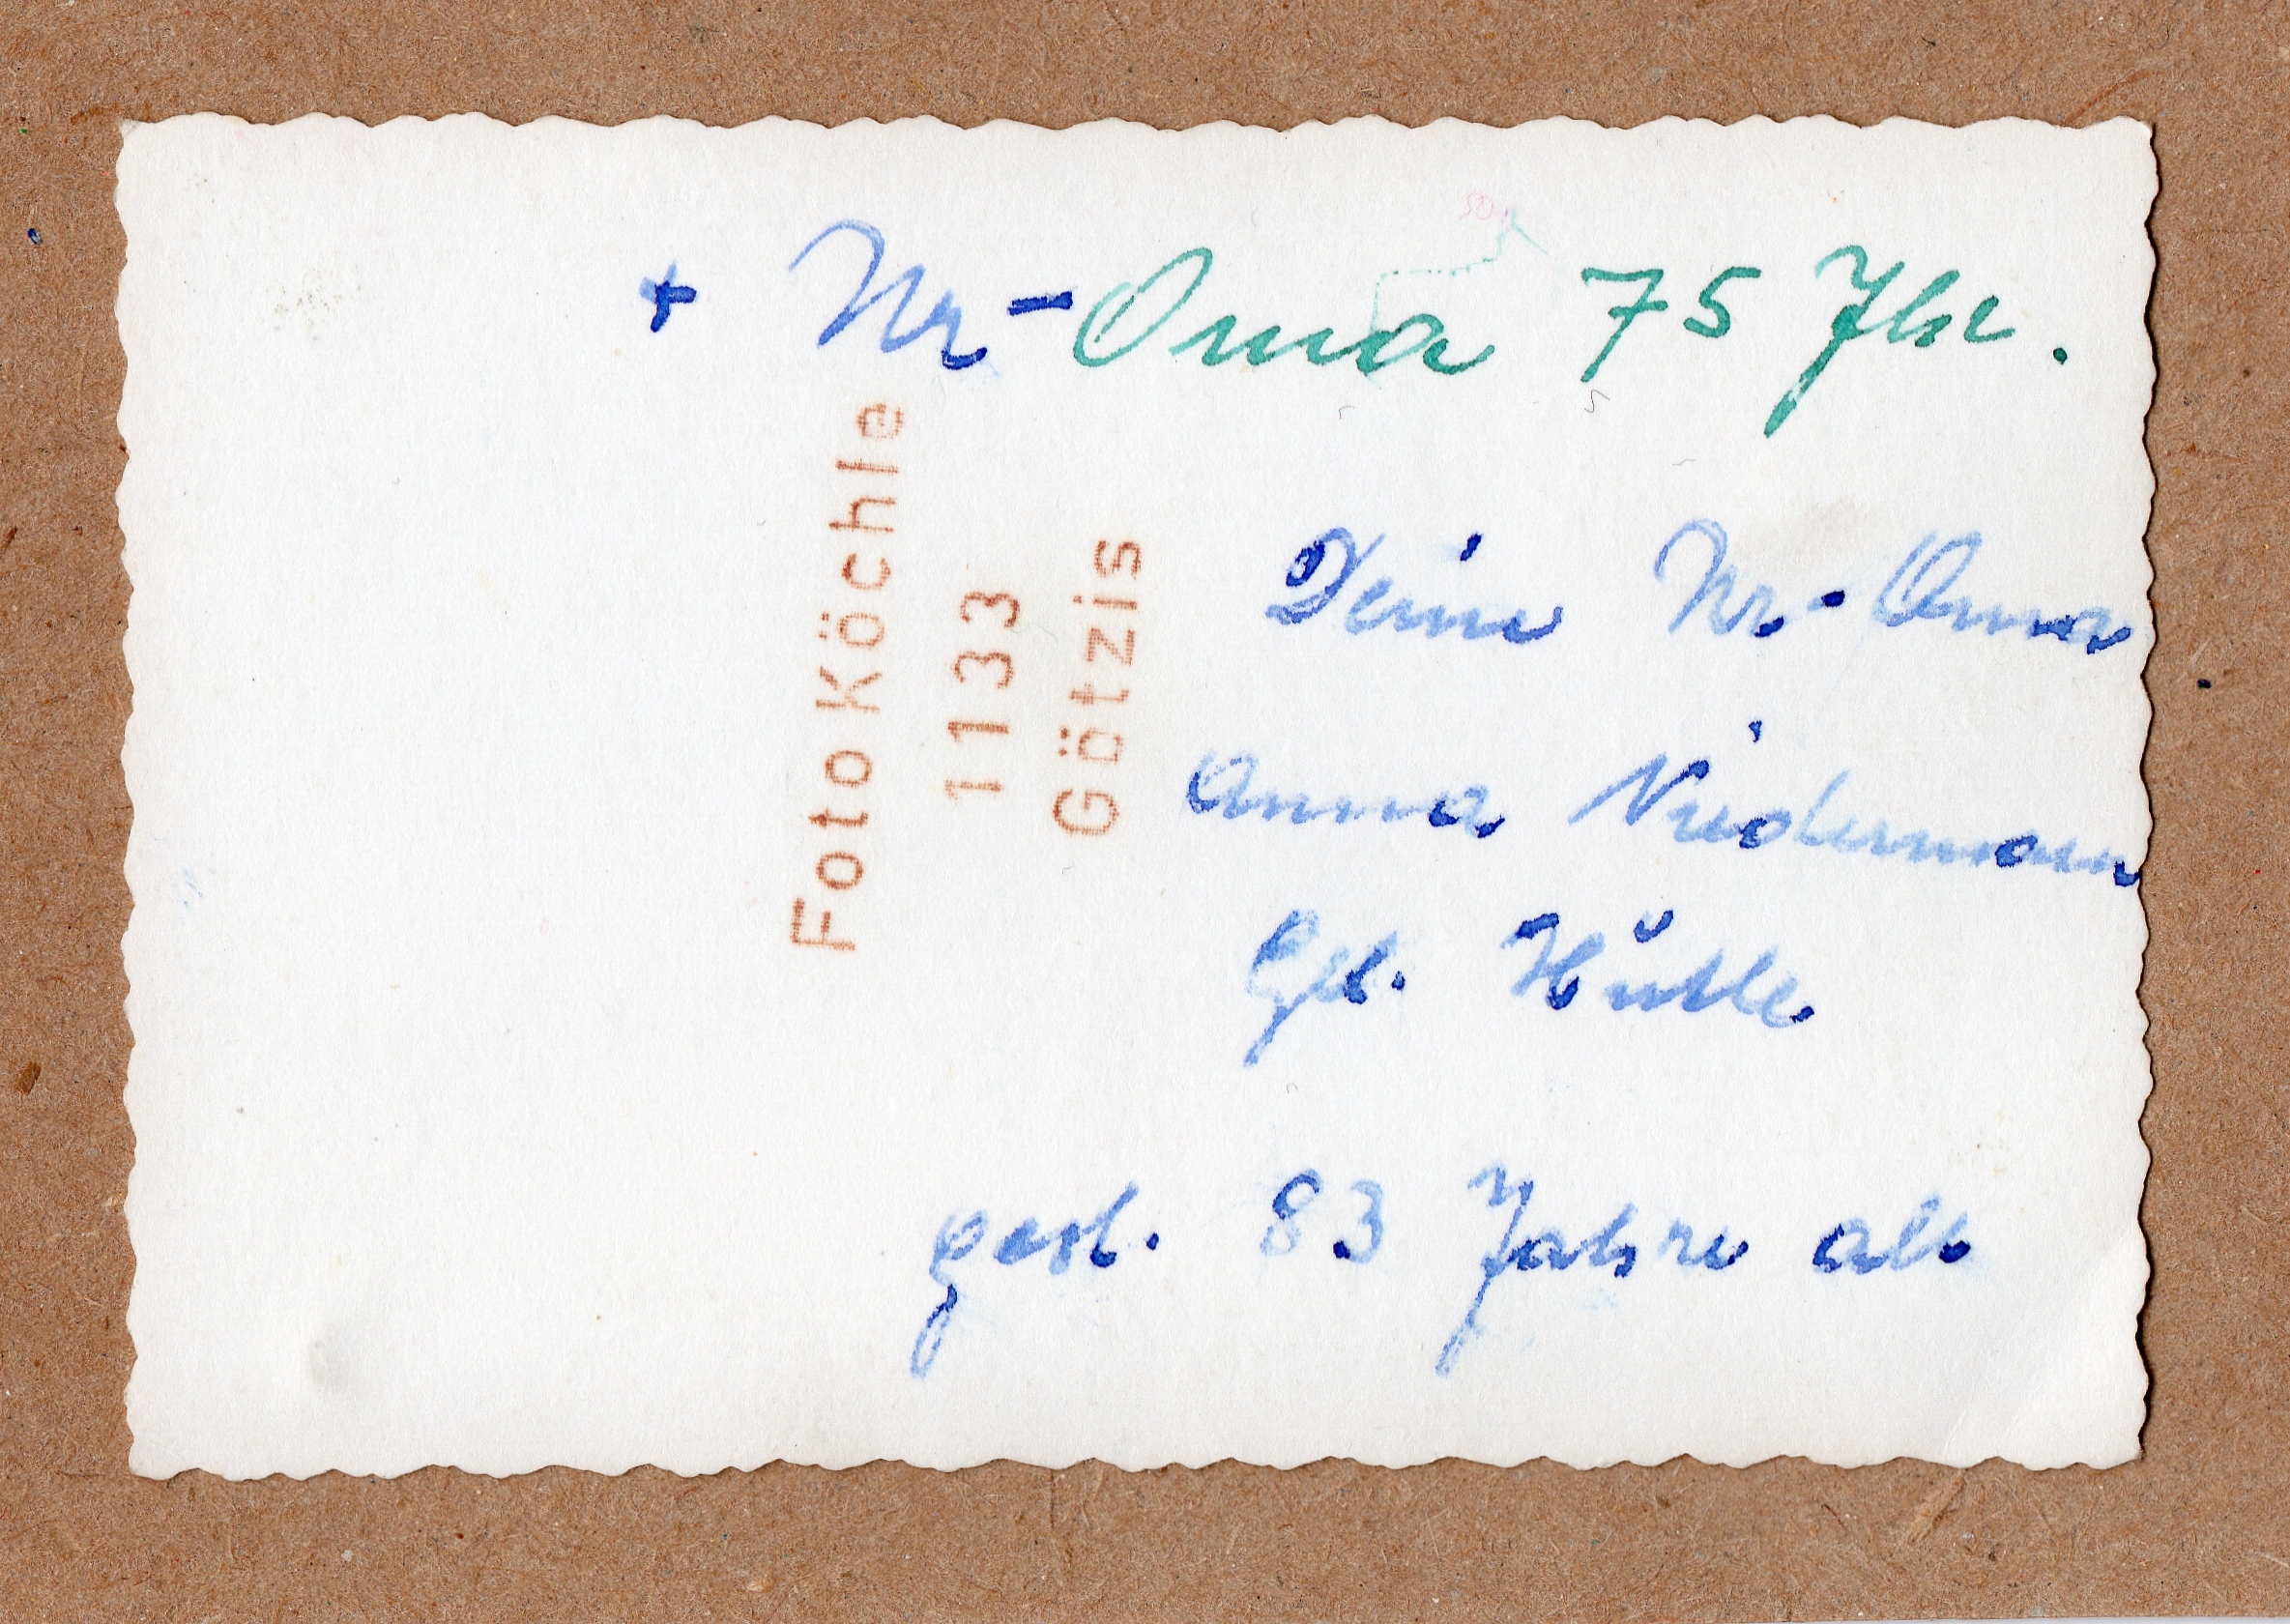 + Ur-Oma 75 Jhr.
Foto Köchle
1133
Götzis
Deine Ur-Oma
Anna Niedermann
Geb. Hütle
gest. 83 Jahre alt